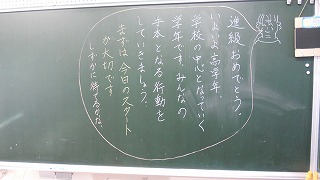 進級おめでとう。
いよいよ高学年。
学校の中心となっていく
学年です。みんなの
手本となる行動を
していきましょう。
まずは今日のスタート
が大切です。
しずかに待てるかな。